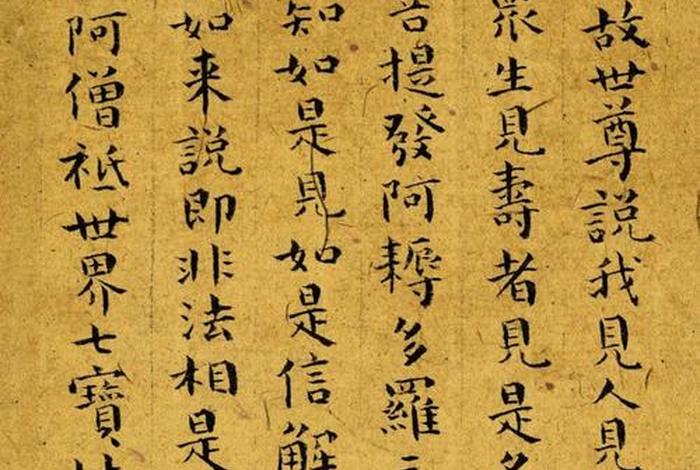 故世尊說我見人見
衆生見壽者見是名
菩提發阿耨多羅三
知如是見如是信解
如来說即非法相是
阿僧祇世界七寶